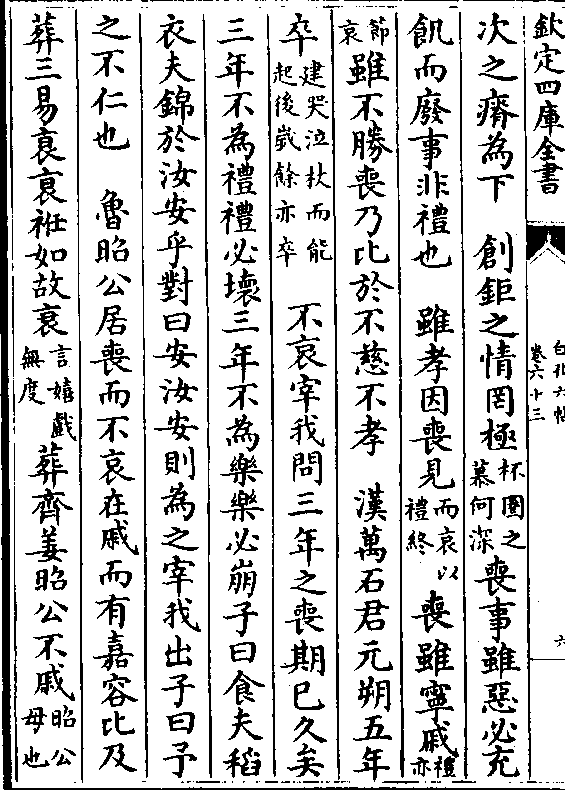 欽定四庫全書
白孔六帖
卷六十三
六
次之瘠為下　創鉅之情罔極杯圈之慕何深喪事雖惡必充
飢而廢事非禮也　雖孝因喪見而哀以禮終喪雖寧戚禮亦
節哀雖不勝喪乃比於不慈不孝　漢萬石君元朔五年
卒建哭泣杖而能起後歲餘亦卒　不哀宰我問三年之喪期已久矣
三年不為禮禮必壞三年不為樂樂必崩子曰食夫稻
衣夫錦於汝安乎對曰安汝安則為之宰我出子曰予
之不仁也　魯昭公居喪而不哀在戚而有嘉容比及
葬三易衰衰衽如故衰言嬉戲無度葬齊姜昭公不戚昭公母也